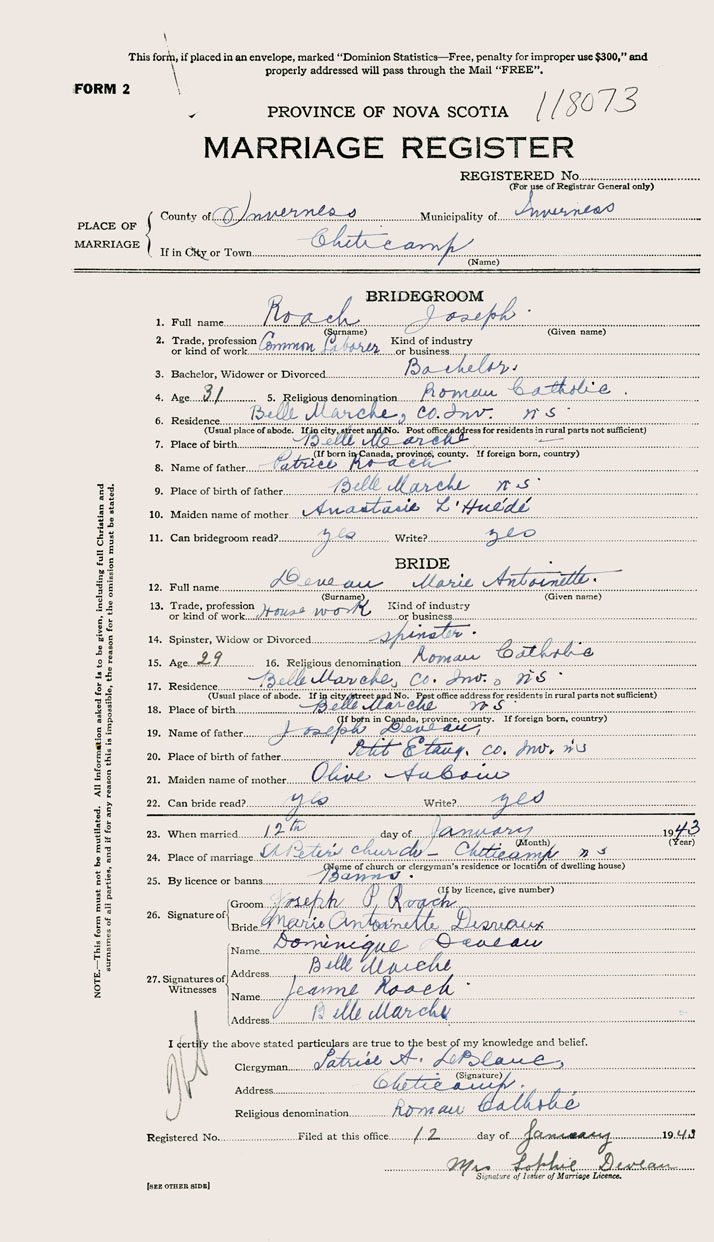 This form, if placed in an envelope, marked "Dominion Statistics—Free, penalty for improper use $300," and
properly addressed will pass through the Mail "FREE".
FORM 2
PROVINCE OF NOVA SCOTIA 118073
MARRIAGE REGISTER
REGISTERED No.
(For use of Registrar General only)
PLACE OF MARRIAGE
County of Inverness Municipality of Inverness
If in City or Town Cheticamp
(Name)
BRIDEGROOM
1. Full name Roach Joseph
(Surname) (Given name)
2. Trade, profession or kind of work Common Laborer Kind of industry or business
3. Bachelor, Widower or Divorced Bachelor.
4. Age 31 5. Religious denomination Roman Catholic.
6. Residence Belle Marche, Co. Inv. NS.
(Usual place of abode. If in city, street and No. Post office address for residents in rural parts not sufficient)
7. Place of birth Belle Marche
(If born in Canada, province, county. If foreign born, country)
8. Name of father Patrice Roach
9. Place of birth of father Belle Marche NS.
10. Maiden name of mother Anastasie L'Huédé
11. Can bridegroom read? yes Write? yes
BRIDE
12. Full name Deveau Marie Antoinette.
(Surname) (Given name)
13. Trade, profession or kind of work House work Kind of industry or business
14. Spinster, Widow or Divorced spinster.
15. Age 29 16. Religious denomination Roman Catholic
17. Residence Belle Marche, Co. Inv., NS.
(Usual place of abode. If in city, street and No. Post office address for residents in rural parts not sufficient)
18. Place of birth Belle Marche NS.
(If born in Canada, province, county. If foreign born, country)
19. Name of father Joseph Deveau,
20. Place of birth of father Petit Etang. Co. Inv. NS
21. Maiden name of mother Olive AuCoin
22. Can bride read? yes Write? yes
23. When married 12th day of January 1943
(Month) (Year)
24. Place of marriage St Peter's church - Cheticamp NS
(Name of church or clergyman's residence or location of dwelling house)
25. By licence or banns Banns.
(If by licence, give number)
26. Signature of
Groom Joseph P. Roach
Bride Marie Antoinette Desveaux
27. Signatures of Witnesses
Name Dominique Deveau
Address Belle Marche
Name Jeanne Roach.
Address Belle Marche
I certify the above stated particulars are true to the best of my knowledge and belief.
Clergyman Patrice A. LeBlanc,
(Signature)
Address Cheticamp.
Religious denomination Roman Catholic
Registered No. Filed at this office 12 day of January 1943
Mrs Sophie Deveau
Signature of Issuer of Marriage Licence.
[SEE OTHER SIDE]
NOTE.—This form must not be mutilated. All information asked for is to be given, including full Christian and
surnames of all parties, and if for any reason this is impossible, the reason for the omission must be stated.